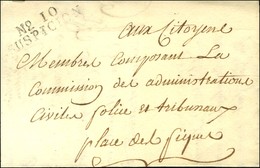 No. 10
aux Citoyens
Membres Composant La
Commission des administrations
Civiles police et tribunaux
place des piques